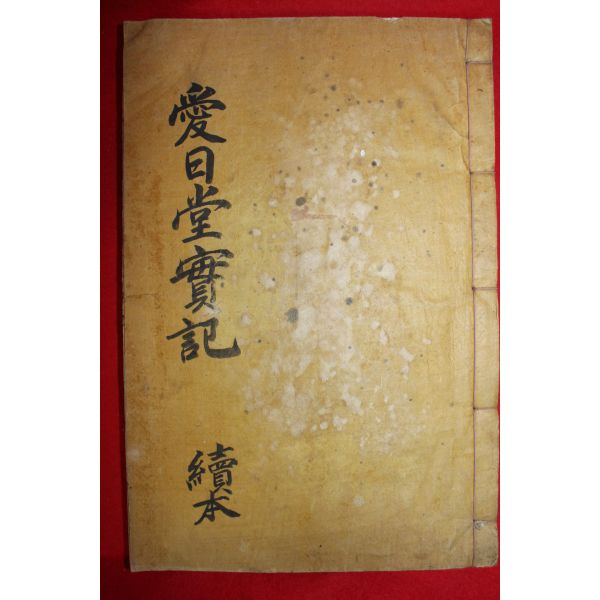 愛日堂實記
續本